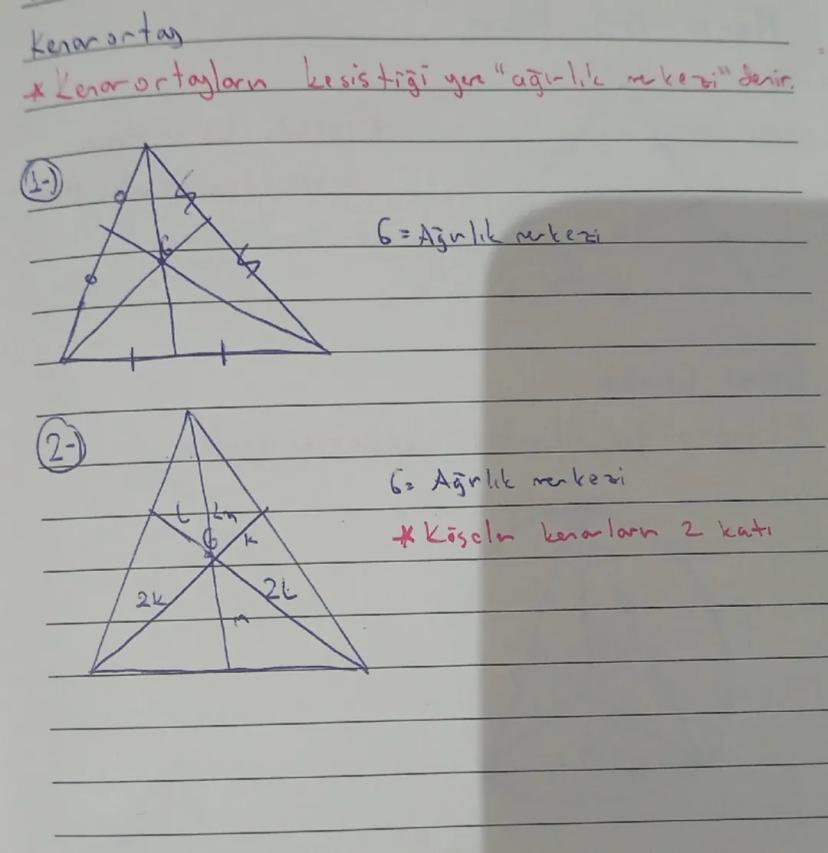 Kenarortay
* Kenarortayların kesiştiği yere "ağırlık merkezi" denir.
1-)
G
G = Ağırlık merkezi
2-)
G = Ağırlık merkezi
* Köşeler kenarların 2 katı
t 2n
G k
2k 2t
n